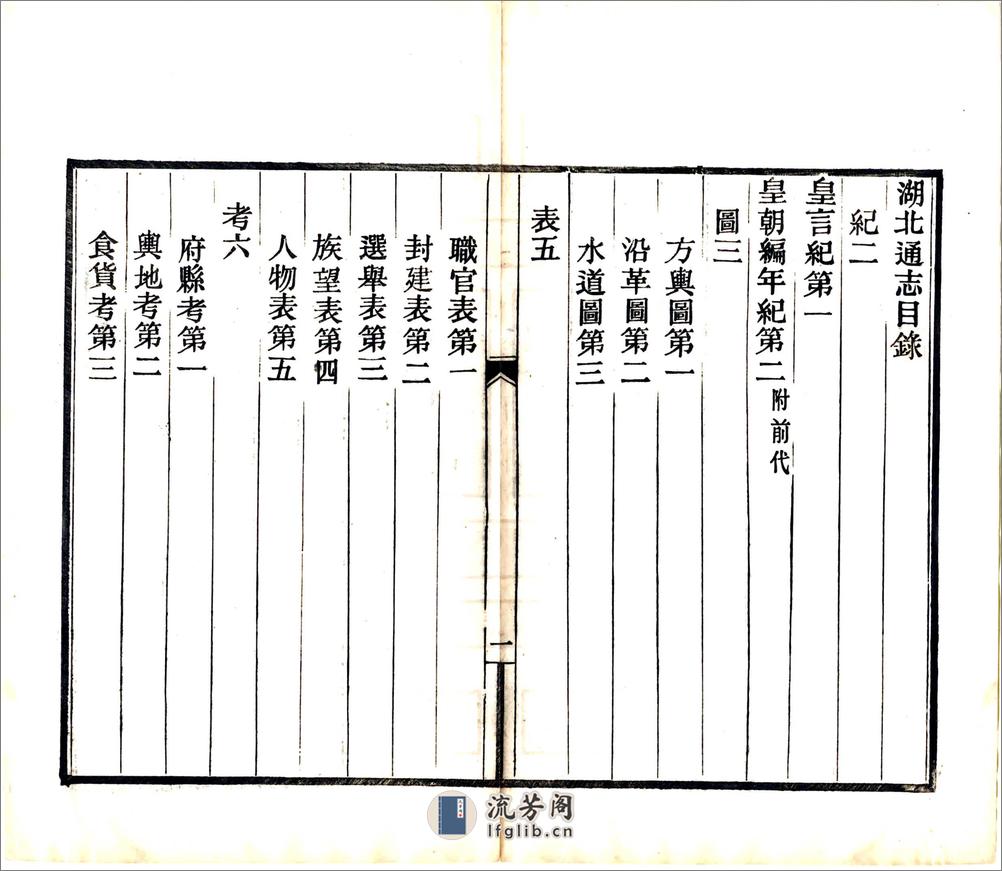 湖北通志目錄
紀二
皇言紀第一
皇朝編年紀第二附前代
圖三
方輿圖第一
沿革圖第二
水道圖第三
表五
一
職官表第一
封建表第二
選舉表第三
族望表第四
人物表第五
考六
府縣考第一
輿地考第二
食貨考第三
流芳阁
lfglib.cn